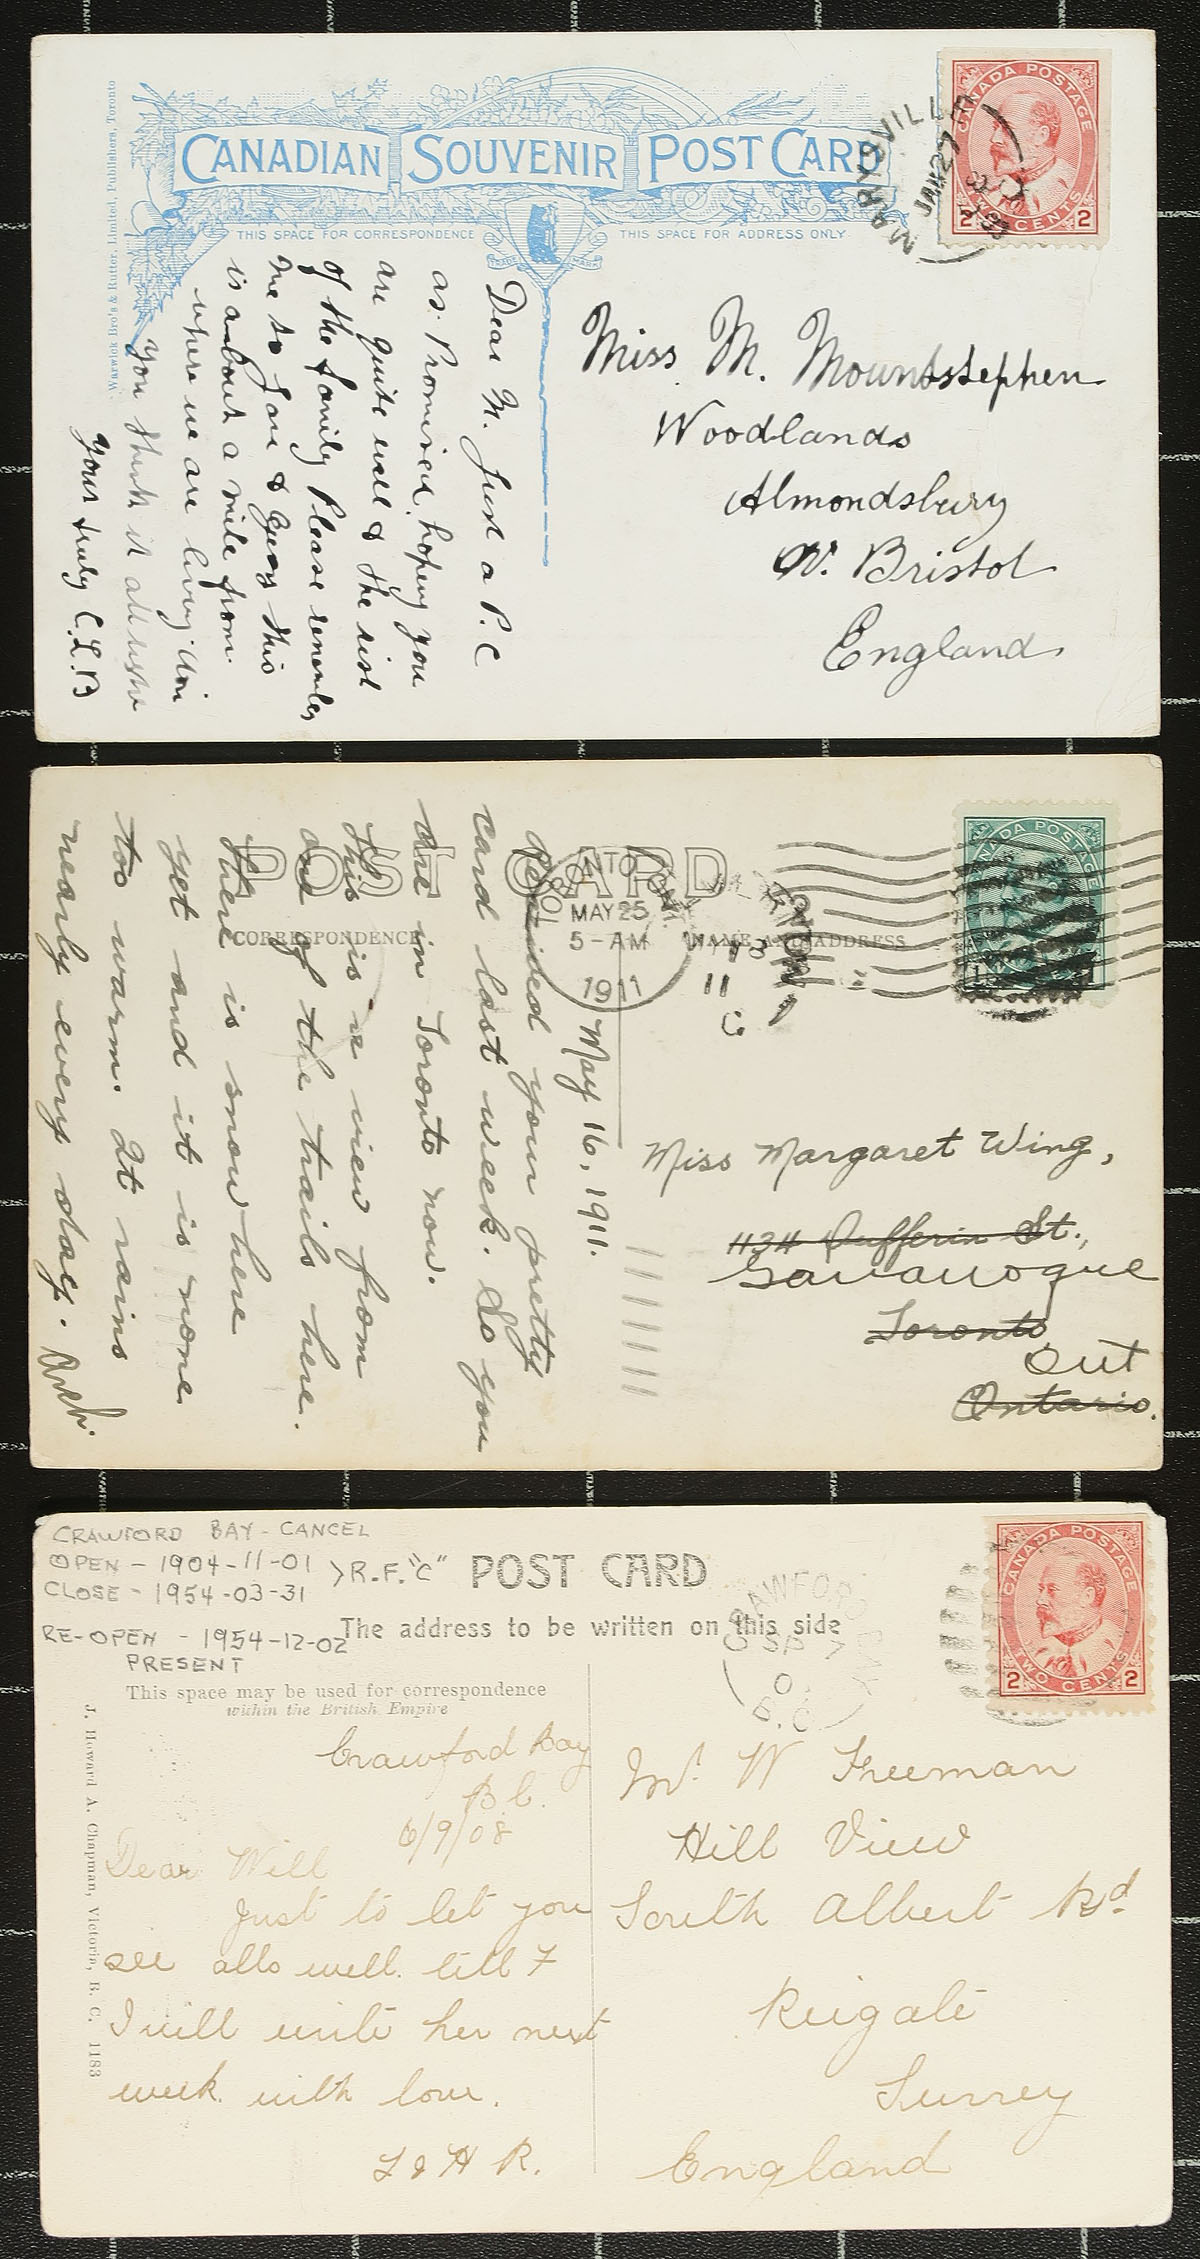 CANADIAN SOUVENIR POST CARD
THIS SPACE FOR CORRESPONDENCE
THIS SPACE FOR ADDRESS ONLY
TRADE MARK
Warwick Bro's & Rutter, Limited, Publishers, Toronto
CANADA POSTAGE
2 TWO CENTS 2
MARYSVILLE
JAN 29
Dear M. Just a P.C
as Promised, hoping you
are quite well & the rest
of the family Please remember
me to &  this
is about a mile from
where we are living
you think it
Yours truly C.L.B
Miss M. Mountstephen
Woodlands
Almondsbury
Nr. Bristol
England
POST CARD
CORRESPONDENCE
NAME AND ADDRESS
TORONTO
MAY 25
5-AM
1911
CANADA POSTAGE
May 16, 1911.
Received your pretty
card last week. So you
are in Toronto now.
This is a view from
one of the trails here.
There is snow here
yet and it is none
too warm. It rains
nearly every day.
Miss Margaret Wing,
1134 Dufferin St.,
Gananoque
Toronto
Ont
Ontario.
CRAWFORD BAY - CANCEL
OPEN - 1904-11-01
CLOSE - 1954-03-31
>R.F. "C"
RE-OPEN - 1954-12-02
PRESENT
POST CARD
The address to be written on this side
This space may be used for correspondence
within the British Empire
J. Howard A. Chapman, Victoria, B. C. 1183
CRAWFORD BAY
SP 7
B.C
CANADA POSTAGE
2 TWO CENTS 2
Crawford Bay
B.C.
6/9/08
Dear Will
Just to let you
see alls well. tell F
I will write her next
week. with love.
& H R.
Mr. W Freeman
Hill View
South Albert Rd.
Reigate
Surrey
England